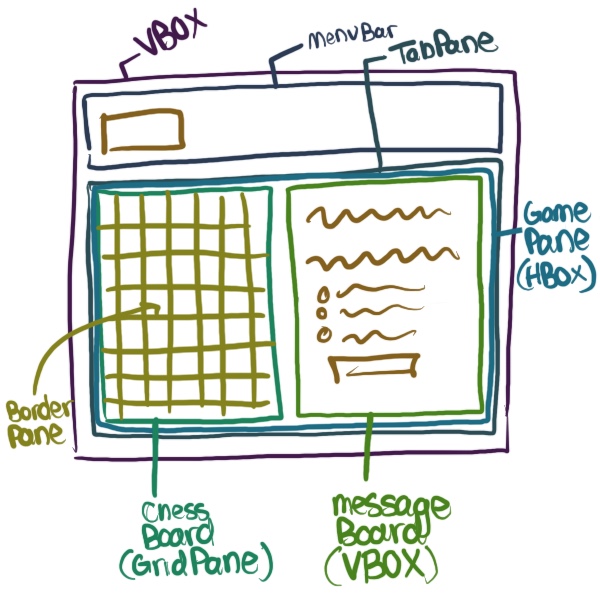 VBOX
MenuBar
TabPane
Game
Pane
(HBOX)
Border
Pane
Chess
Board
(GridPane)
message
Board
(VBOX)